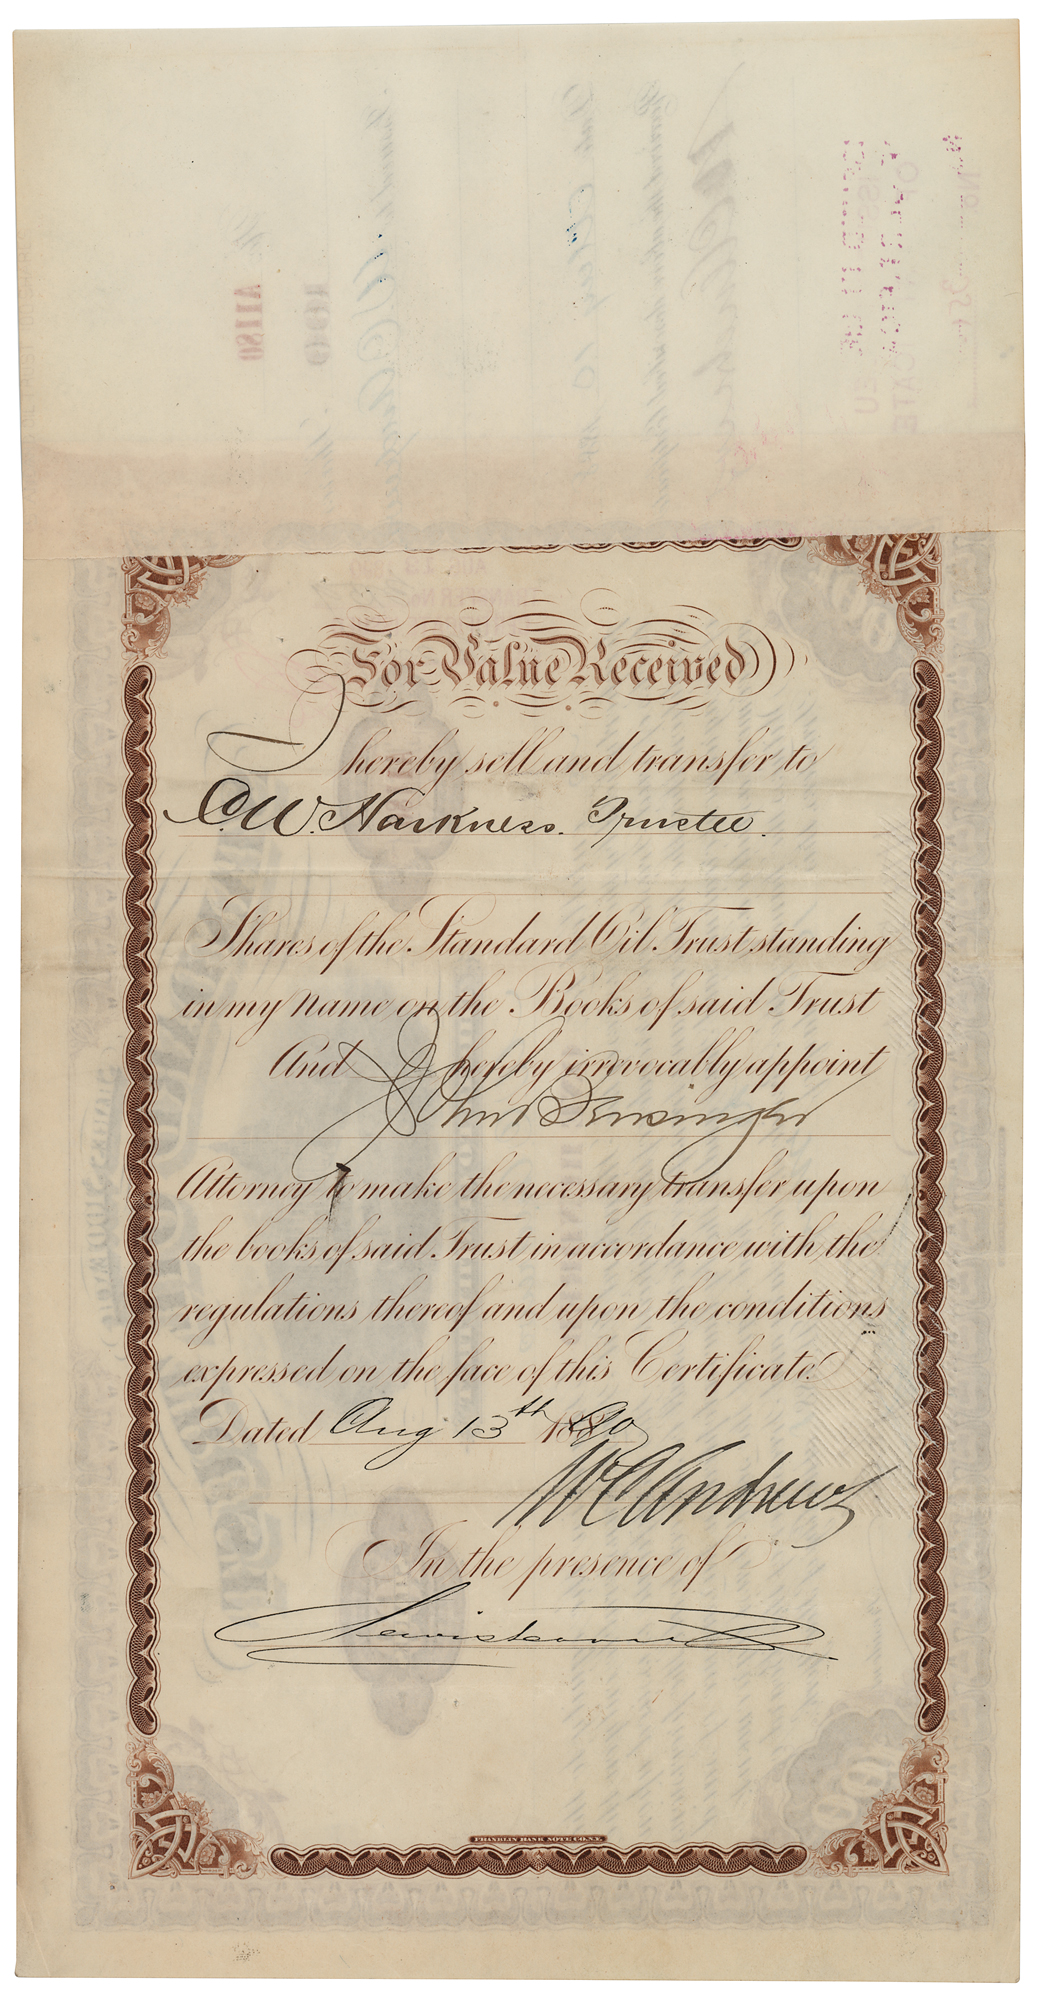 For Value Received
I hereby sell and transfer to
C.W. Harkness. Trustee.
Shares of the Standard Oil Trust standing
in my name on the Books of said Trust
And I hereby irrevocably appoint
John Bensinger
Attorney to make the necessary transfer upon
the books of said Trust in accordance with the
regulations thereof and upon the conditions
expressed on the face of this Certificate.
Dated Aug 13th 1890
W C Andrews
In the presence of
FRANKLIN BANK NOTE CO. N.Y.
A1180